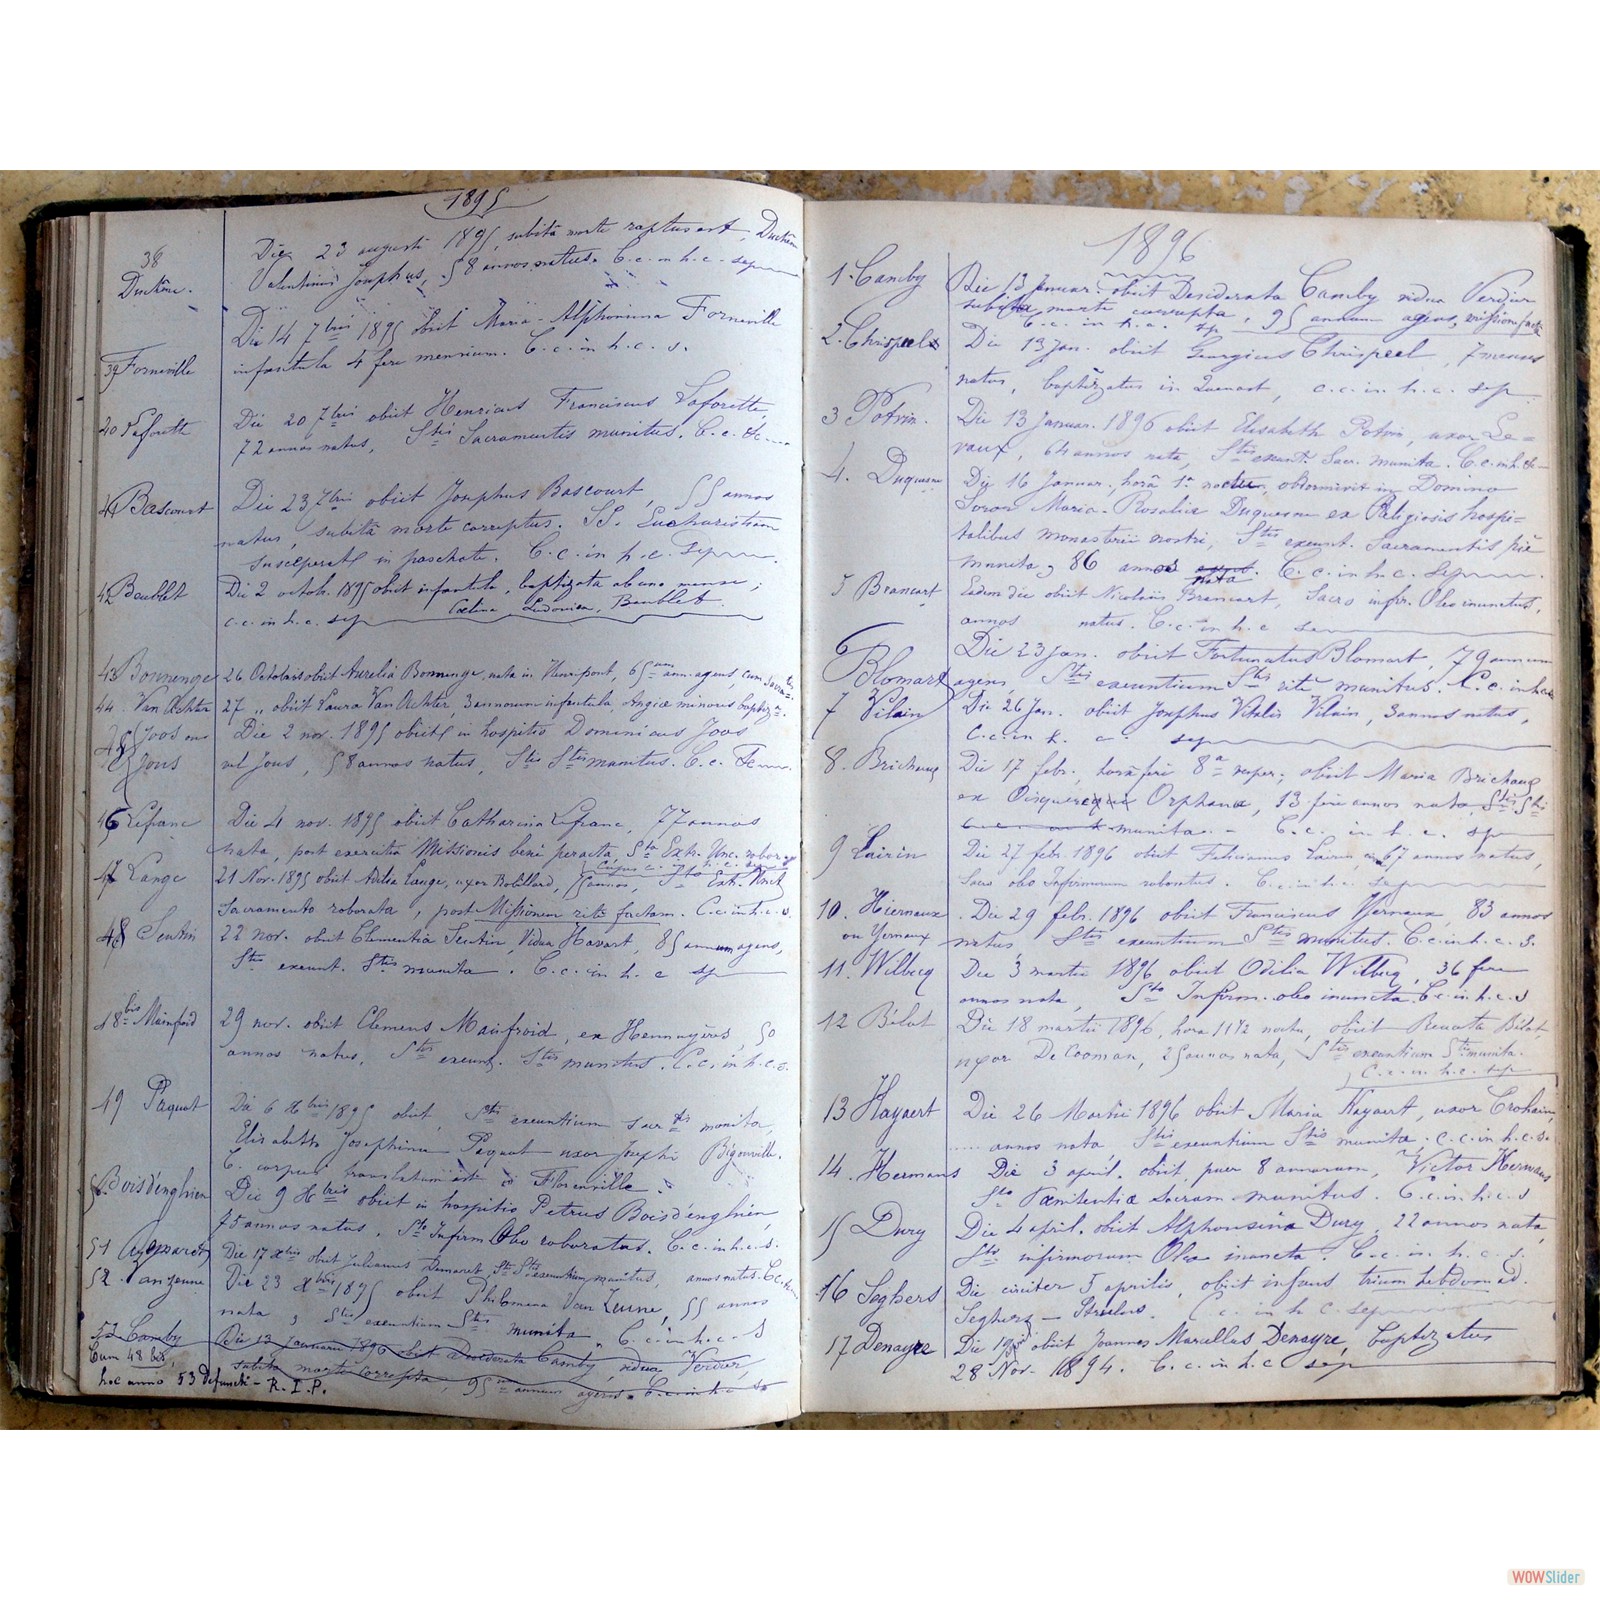 1895
38 Die 23 augusti 1895, subitâ morte raptus est, Duchêne
Duchêne. Valentinus Josephus, 58 annos natus. C. c. in h. c. sep
Die 14 7bris 1895 obiit Maria-Alphonsina Forneville
39 Forneville infantula 4 fere mensium. C. c. in h. c. s.
40 Laforette Die 20 7bris obiit Henricus Franciscus Laforette,
72 annos natus, Stis Sacramentis munitus. C. c.
41 Bascourt Die 23 7bris obiit Josephus Bascourt, 55 annos
natus, subitâ morte correptus. SS. Eucharistiam
susceperat in paschate. C. c. in h. c. Sep
42 Baublet Die 2 octob. 1895 obiit infantula, baptizata ab uno mense;
c. c. in h. c. sep Ludovica, Baublet.
43 Bonnenge 26 Octobris obiit Aurelia Bonnenge, nata in Henripont, 65 ann. agens, cum
44. Van Achter 27 „ obiit Laura Van Achter, 3 annorum infantula,
45 Joos ou Die 2 nov. 1895 obiit in hospitio Dominicus Joos
Jous vel Jous, 58 annos natus, Stis Stis munitus. C. c.
46 Lefranc Die 4 nov. 1895 obiit Catharina Lefranc, 77 annos
nata, post exercitia Missionis bene peracta, Sta Extr. Unc. robor
47 Lange 21 Nov. 1895 obiit Lange, uxor Robillard, annos, Sto Ext. Unct
Sacramento roborata, post Missionem rite factam. C. c. in h. c. s.
48 Sentin 22 nov. obiit Clementia Sentin, Vidua Havart, 85 annum agens,
Stis exeunt. Stis munita. C. c. in h. c sep
48 bis Mainfroid 29 nov. obiit Clemens Mainfroid, ex Hennuyères, 50
annos natus, Stis exeunt. Stis munitus. C. c. in h. c. s.
49 Paquot Die 6 Xbris 1895 obiit, Stis exeuntium sacrtis munita,
Elisabetta Josephina Paquot uxor Josephi Bigonville.
C. corpus translatum est Florenville.
50. Boisd'enghien Die 9 Xbris obiit in hospitio Petrus Boisd'enghien,
75 annos natus, Sto Infirm Oleo roboratus. C. c. in h. c. s.
51 Die 17 Xbris obiit Julianus Demaret Stis Stis exeuntium munitus, annos natus. C. c.
52. Die 23 Xbris 1895 obiit Philomena Van Zeune, 55 annos
nata, Stis exeuntium Stis munita. C. c. in h. c. s
53 Camby Die 13 Januarii 1896 obiit Desiderata Camby, vidua Verdur,
Cum 48 bis, subita morte correpta, 95 annum agens. C. c. in h. c. s
hoc anno 53 defuncti - R. I. P.
1896
1. Camby Die 13 Januar. obiit Desiderata Camby vidua Verdur
subita morte correpta, 95 annum agens, missione facta
C. c. in h. c. sep
2. Chrispeels Die 13 Jan. obiit Georgius Chrispeel, 7 menses
natus, baptizatus in Quenast, c. c. in h. c. sep.
3 Potvin. Die 13 Januar. 1896 obiit Elisabeth Potvin, uxor Le=
vaux, 64 annos nata, Stis exeunt. Sacr. munita. C. c. in h. c.
4. Duquesne Die 16 Januar., horâ 1a noctis, obdormivit in Domino
Soror Maria-Rosalia Duquesne ex Religiosis hospi=
talibus monasterii nostri, Stis exeunt. Sacramentis piè
munita, 86 annos nata. C. c. in h. c. sep
5 Brancart Eadem die obiit Nicolaüs Brancart, Sacro infir. Oleo inunctus,
annos natus. C. c. in h. c se
6 Die 23 jan. obiit Fortunatus Blomart, 79 annum
Blomart agens, Stis exeuntium Stis rite munitus. C. c. in h. c.
7 Vilain Die 26 Jan. obiit Josephus Vitalis Vilain, 3 annos natus,
C. c. in h. c. sep
8. Brichaux Die 17 febr., horâ ferè 8a vesper; obiit Maria Brichaux
ex Oisquercq Orphana, 13 fere annos nata, Stis Stis
munita. - C. c. in h. c. sep
9 Lairin Die 27 febr. 1896 obiit Felicianus Lairin, 67 annos natus,
Sacro oleo Infirmorum roboratus. C. c. in h. c. sep
10. Hiernaux Die 29 febr. 1896 obiit Franciscus Yernaux, 83 annos
ou Yernaux natus, Stis exeuntium Stis munitus. C. c. in h. c. s.
11. Wilbecq Die 3 martii 1896 obiit Odilia Wilbecq, 36 fere
annos nata, Sto Infirm. oleo inuncta. C. c. in h. c. s
12 Bélot Die 18 martii 1896, hora 11 1/2 noctu, obiit Renata Bélot,
uxor De Cooman, 25 annos nata, Stis exeuntium Stis munita.
C. c. in h. c. sep
13 Hayaert Die 26 Martii 1896 obiit Maria Hayaert, uxor Crohain,
..... annos nata, Stis exeuntium Stis munita. c. c. in h. c. s.
14. Hermans Die 3 april. obiit puer 8 annorum, Victor Hermans
Sto Pœnitentiæ Sacram munitus. C. c. in h. c. s
15 Dury Die 4 april. obiit Alphonsina Dury, 22 annos nata,
Sto infirmorum Oleo inuncta. C. c. in h. c. s.
16 Seghers Die circiter 5 aprilis, obiit infans trium hebdomad.
Seghers - C. c. in h c sep
17 Denayre Die obiit Joannes Marcellus Denayre, baptizatus
28 Nov. 1894. C. c. in h. c sep
WOWSlider